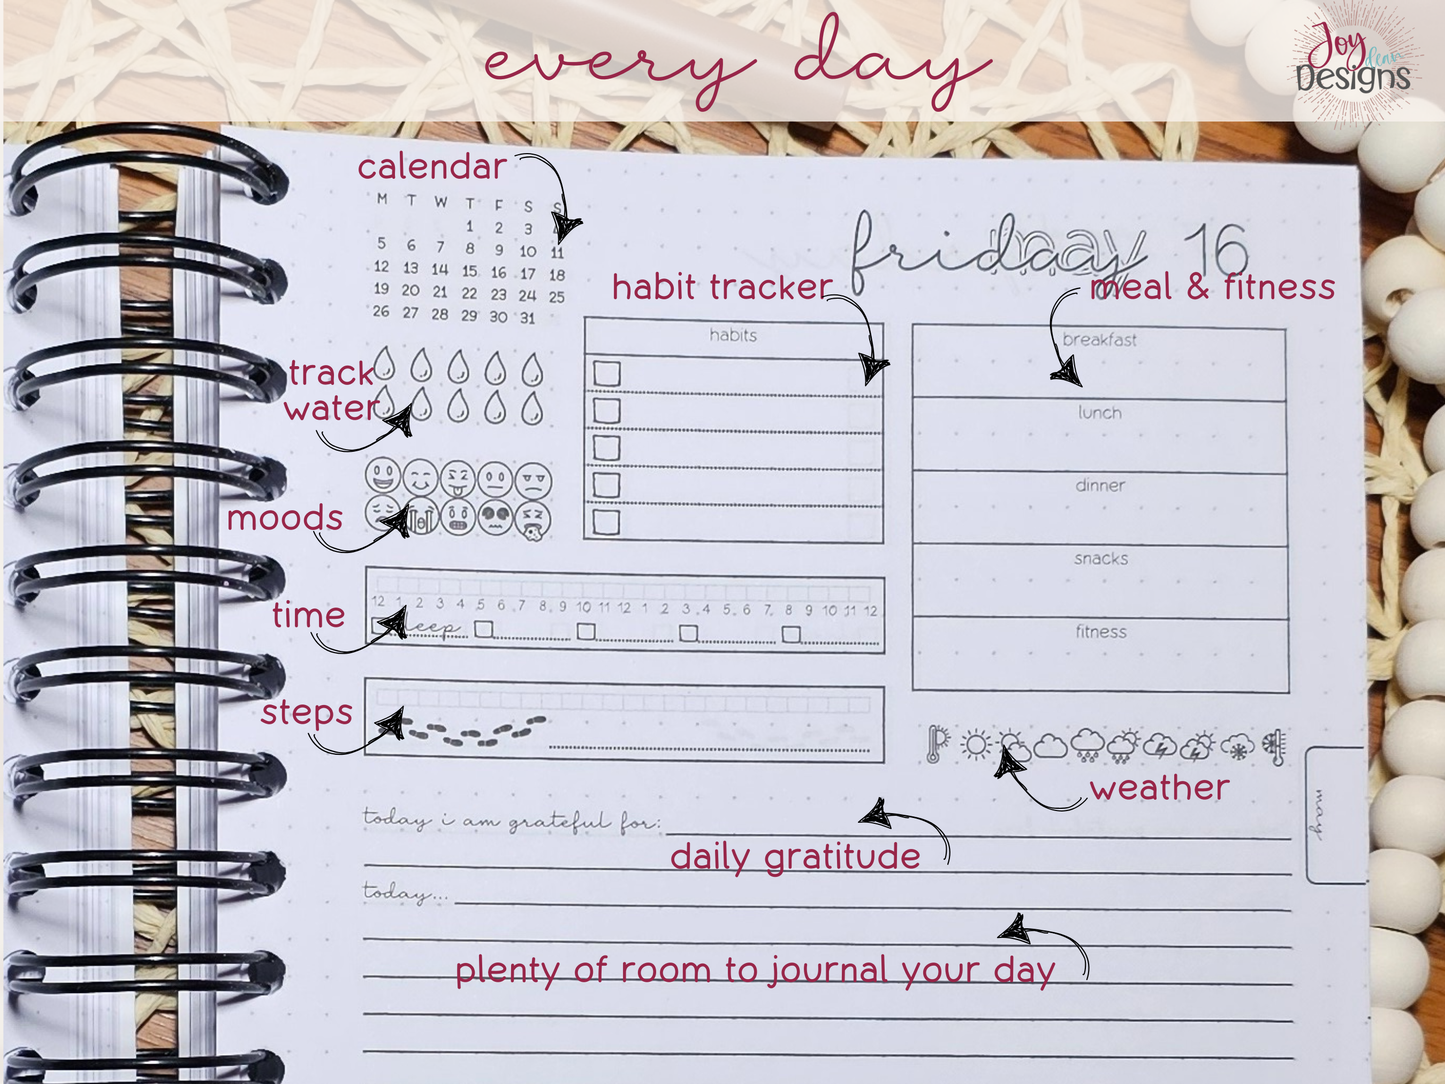 every day
Joy
dena
Designs
calendar
M T W T F S S
1 2 3
5 6 7 8 9 10 11
12 13 14 15 16 17 18
19 20 21 22 23 24 25
26 27 28 29 30 31
friday 16
may
habit tracker
meal & fitness
habits
breakfast
track
water
lunch
moods
dinner
snacks
time
12 1 2 3 4 5 6 7 8 9 10 11 12 1 2 3 4 5 6 7 8 9 10 11 12
sleep
fitness
steps
weather
may
today i am grateful for:
daily gratitude
today...
plenty of room to journal your day